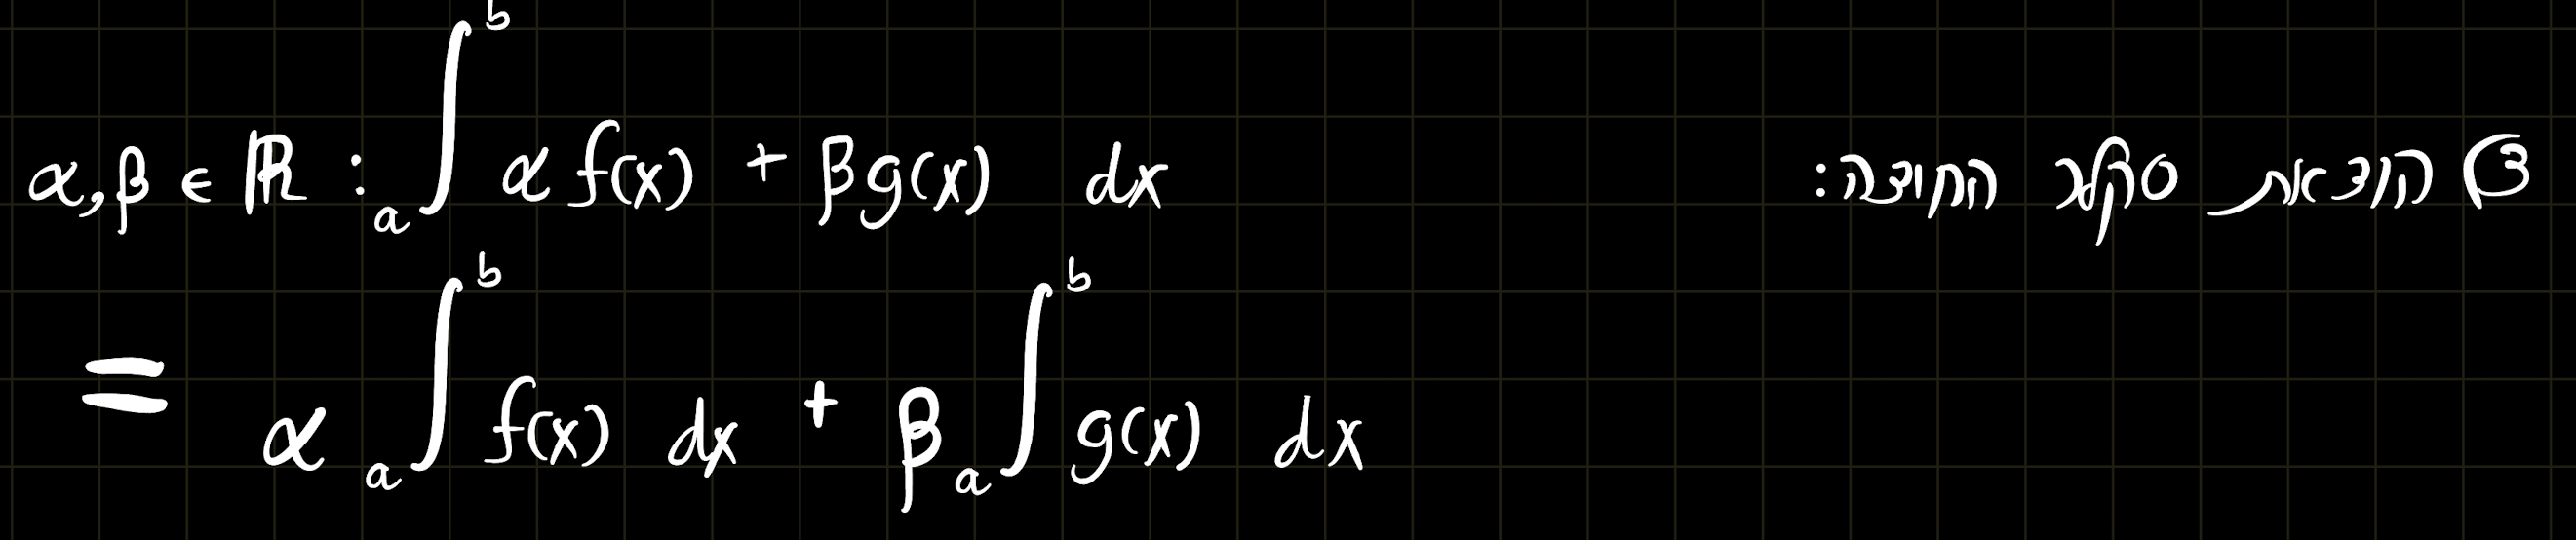 ③ הוצאת סקלר החוצה:
α,β ∈ ℝ : ₐ∫ᵇ αf(x) + βg(x) dx
= α ₐ∫ᵇ f(x) dx + β ₐ∫ᵇ g(x) dx